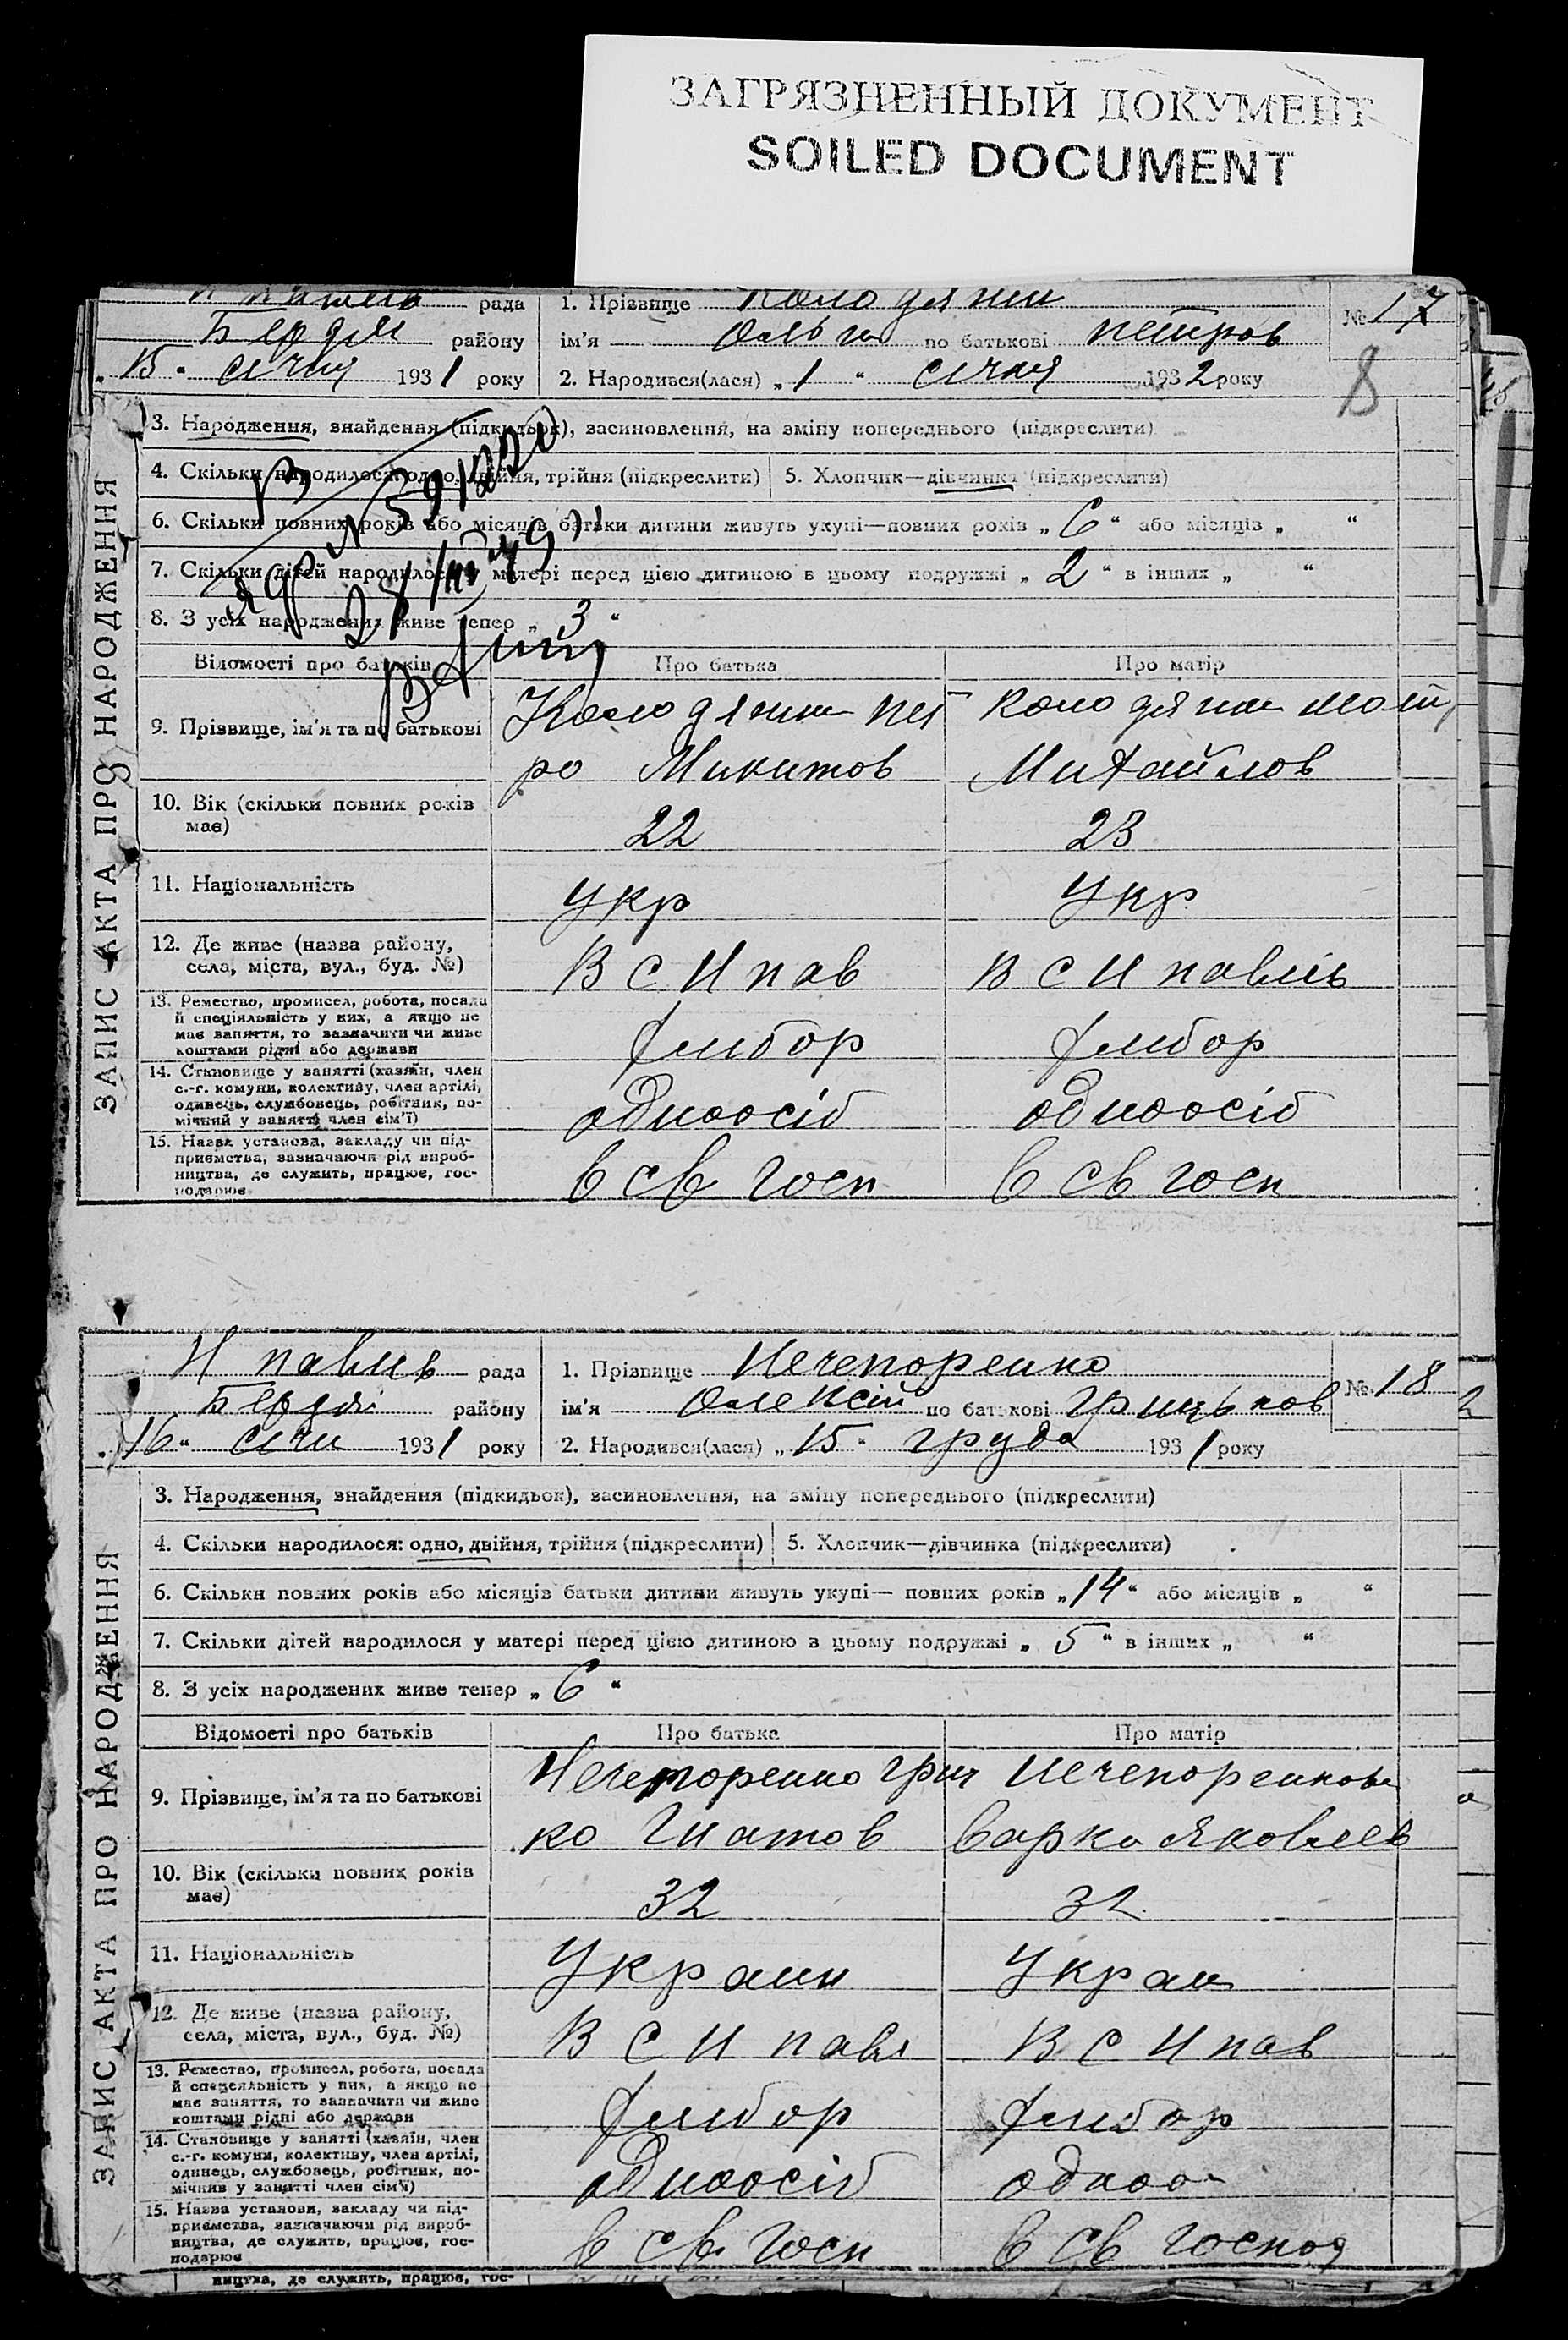 ЗАГРЯЗНЕННЫЙ ДОКУМЕНТ
SOILED DOCUMENT
рада
Бердян району
„15“ січня 1931 року
1. Прізвище Колодяжн
ім'я Ольга по батькові Петров
2. Народився(лася) „1“ січня 1932 року
№ 17
8
ЗАПИС АКТА ПРО НАРОДЖЕННЯ
3. Народження, знайдення (підкидьок), засиновлення, на зміну попереднього (підкреслити)
4. Скільки народилося: одно, двійня, трійня (підкреслити)
5. Хлопчик—дівчинка (підкреслити)
6. Скільки повних років або місяців батьки дитини живуть укупі—повних років „6“ або місяців „ “
7. Скільки дітей народилося у матері перед цією дитиною в цьому подружжі „2“ в інших „ “
8. З усіх народжених живе тепер „3“
Відомості про батьків Про батька Про матір
9. Прізвище, ім'я та по батькові
Пет
ро Микитов
Михайлов
10. Вік (скільки повних років має) 22 23
11. Національність Укр Укр
12. Де живе (назва району,
села, міста, вул., буд. №) В С Н пав В С Н павлів
13. Ремество, промисел, робота, посада
й спеціяльність у них, а якщо не
має заняття, то зазначити чи живе
коштами рідні або держави
хлібор хлібор
14. Становище у занятті (хазяїн, член
с.-г. комуни, колективу, член артілі,
одинець, службовець, робітник, по-
мічний у занятті член сім'ї)
одноосіб одноосіб
15. Назва установи, закладу чи під-
приємства, зазначаючи рід вироб-
ництва, де служить, працює, гос-
подарює
в св госп в св госп
Н павлів рада
Бердян району
„16“ січн 1931 року
1. Прізвище Нечепоренко
ім'я Олексій по батькові Грицьков
2. Народився(лася) „15“ груда 1931 року
№ 18
ЗАПИС АКТА ПРО НАРОДЖЕННЯ
3. Народження, знайдення (підкидьок), засиновлення, на зміну попереднього (підкреслити)
4. Скільки народилося: одно, двійня, трійня (підкреслити)
5. Хлопчик—дівчинка (підкреслити)
6. Скільки повних років або місяців батьки дитини живуть укупі— повних років „14“ або місяців „ “
7. Скільки дітей народилося у матері перед цією дитиною в цьому подружжі „5“ в інших „ “
8. З усіх народжених живе тепер „6“
Відомості про батьків Про батька Про матір
9. Прізвище, ім'я та по батькові
Нечепоренко Гриц Нечепоренкова
ко Гнатов Варка Яковлев
10. Вік (скільки повних років має) 32 32
11. Національність Украин Украи
12. Де живе (назва району,
села, міста, вул., буд. №) В С Н павл В С Н пав
13. Ремество, промисел, робота, посада
й спеціяльність у них, а якщо не
має заняття, то зазначити чи живе
коштами рідні або держави
хлібор хлібор
14. Становище у занятті (хазяїн, член
с.-г. комуни, колективу, член артілі,
одинець, службовець, робітник, по-
мічник у занятті член сім'ї)
одноосіб одноо
15. Назва установи, закладу чи під-
приємства, зазначаючи рід вироб-
ництва, де служить, працює, гос-
подарює
в св. госп в св господ
ництва, де служить, працює, гос-